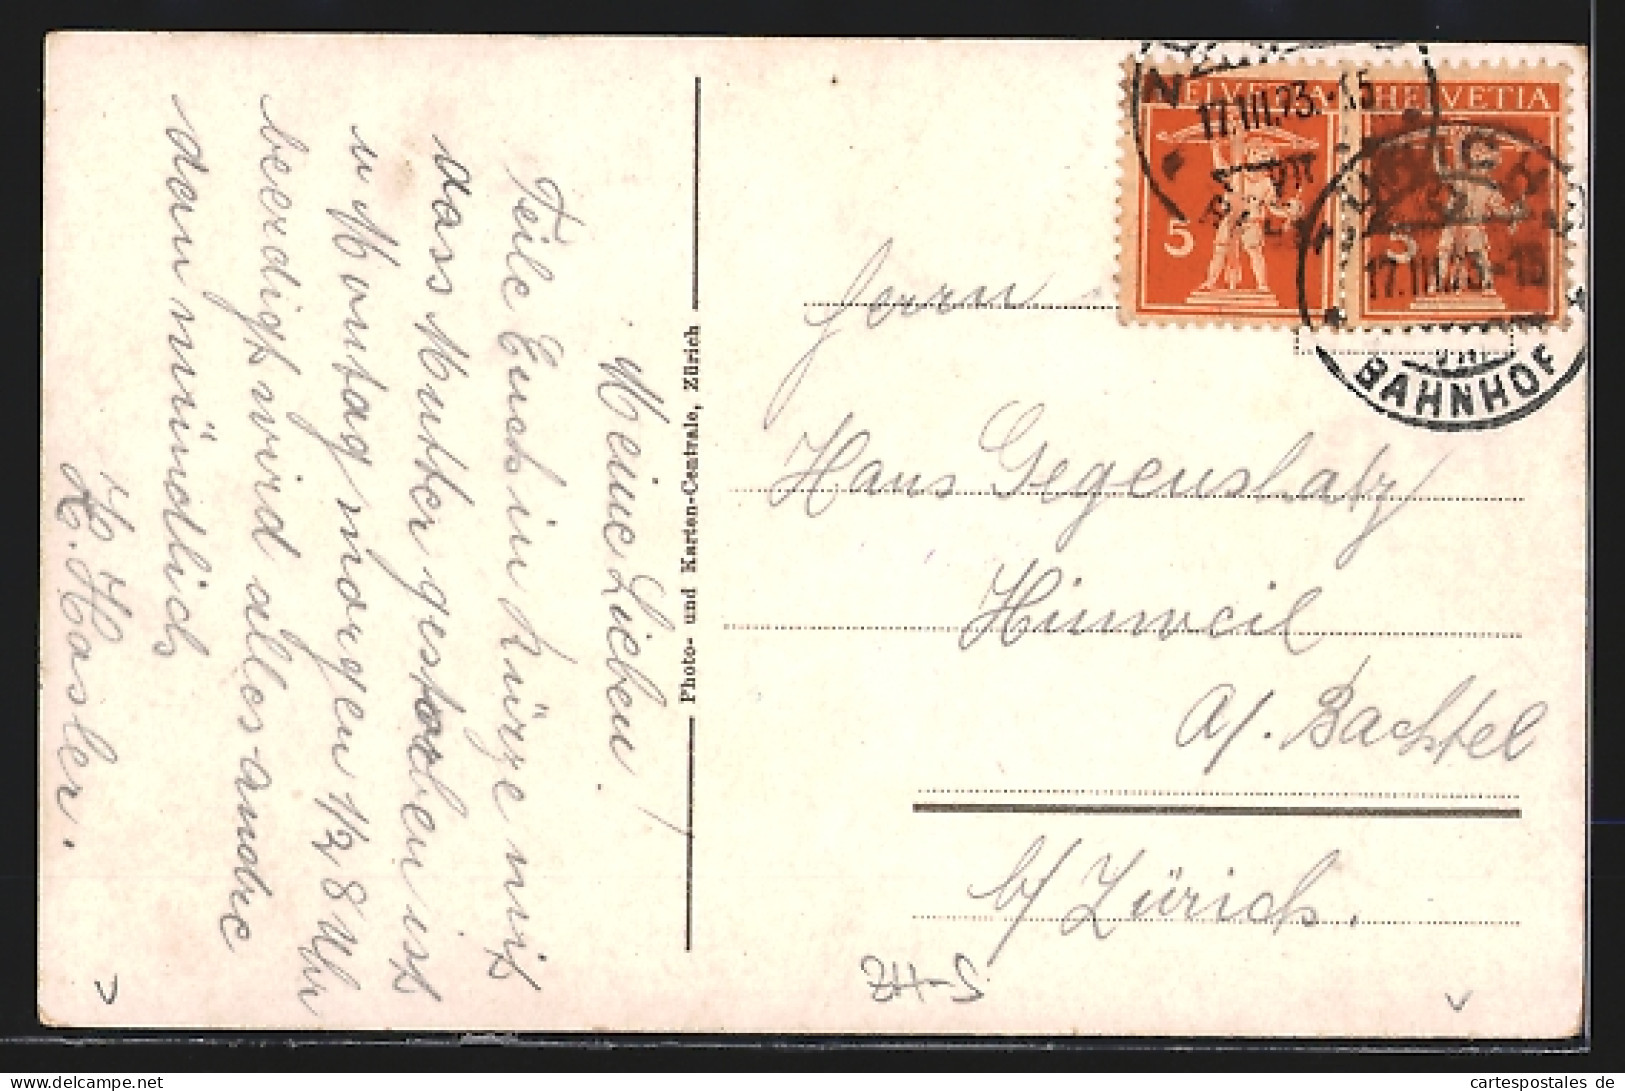 Meine Lieben!
Teile Euch in Kürze mit
dass Mutter gestorben ist
u Montag morgen 1/2 8 Uhr
beerdigt wird alles andre
dann mündlich
H. Hasler.
Photo- und Karten-Centrale, Zürich
HELVETIA
5
HELVETIA
5
17.III.23.-15
VII
ZÜRICH
17.III.23.-15
VII
BAHNHOF
Herrn
Hans Gegenschatz
Hinweil
a/. Bachtel
b/ Zürich.
ZH-S
cartespostales de